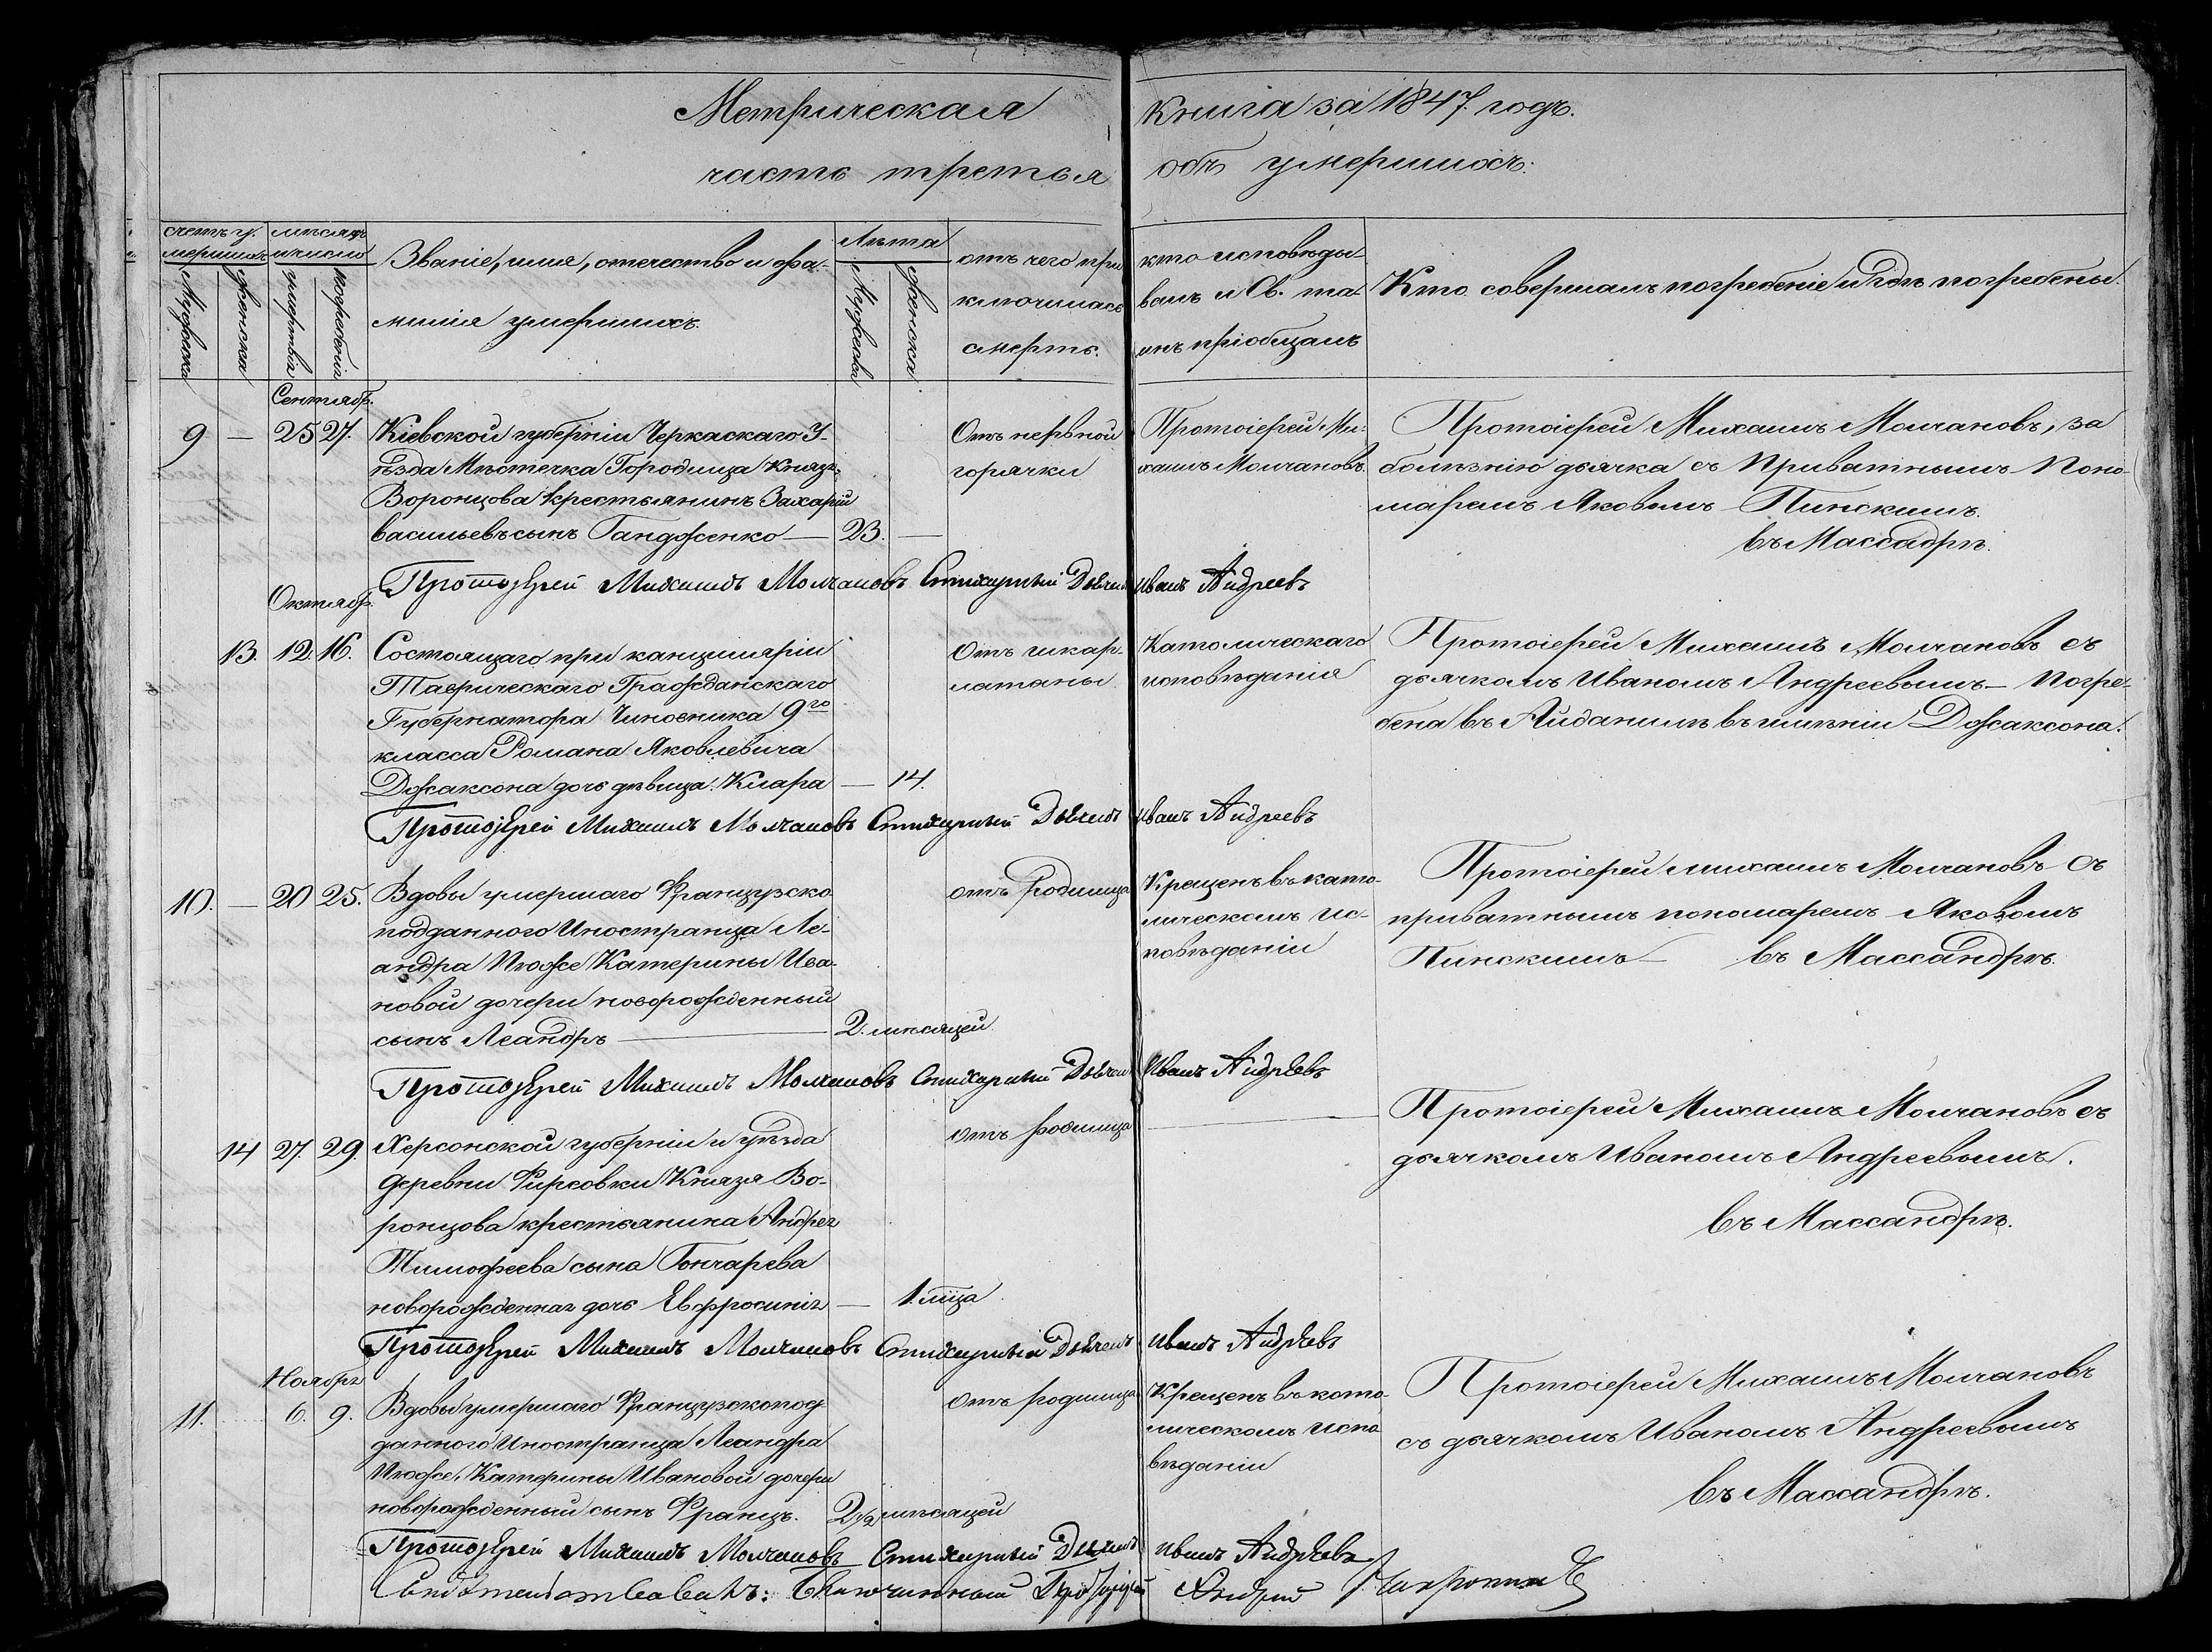 Метрическая книга за 1847. годъ.
часть третья объ умершихъ.
счетъ у-
мершихъ
Мужеска
Женска
мѣсяцъ
и число
умертвія
погребенія
Званіе, имя, отчество и фа-
милія умершихъ.
Лѣта
Мужеска
Женска
отъ чего при
ключилась
смерть.
кто исповѣды-
валъ и Св. та-
инъ пріобщалъ
Кто совершалъ погребеніе и гдѣ погребены.
Сентябр.
9 — 25 27.
Кіевской губерніи Черкаскаго У-
ѣзда Мѣстечка Городища Князя
Воронцова крестьянинъ Захарій
васильевъ сынъ Гандженко — 23. —
Отъ нервной
горячки
Протоіерей Ми-
хаилъ Молчановъ.
Протоіерей Михаилъ Молчановъ, за
болѣзнію дьячка съ Приватнымъ Поно-
маремъ Яковомъ Пинскимъ.
въ Массадрѣ.
Протоіерей Михаилъ Молчановъ Стихарный Дьячекъ Иванъ Андреевъ
Октябр.
13. 12. 16.
Состоящаго при канцеляріи
Таврическаго Гражданскаго
Губернатора Чиновника 9го
класса Романа Яковлевича
Джаксона дочь дѣвица Клара — 14.
Отъ шкар-
латаны
Католическаго
исповѣданія
Протоіерей Михаилъ Молчановъ съ
дьячкомъ Иваномъ Андреевымъ — Погре-
бена въ Айданилѣ въ имѣніи Джаксона.
Протоіерей Михаилъ Молчановъ Стихарный Дьячекъ Иванъ Андреевъ
10. — 20 25.
Вдовы умершаго Французско
подданного Иностранца Ле-
андра Плюже Катерины Ива-
новой дочери новорожденный
сынъ Леандръ — 2. мѣсяцей.
отъ родимца
Крещенъ въ като-
лическомъ ис-
повѣданіи
Протоіерей Михаилъ Молчановъ съ
приватнымъ пономаремъ Яковомъ
Пинскимъ — въ Массандрѣ.
Протоіерей Михаилъ Молчановъ Стихарный Дьячекъ Иванъ Андреевъ
14 27. 29.
Херсонской губерніи и уѣзда
деревни Фирсовки Князя Во-
ронцова крестьянина Андрея
Тимофеева сына Гончарева
новорожденная дочь Евфросинія — 1. мца
отъ родимца
Протоіерей Михаилъ Молчановъ съ
дьячкомъ Иваномъ Андреевымъ.
въ Массандрѣ.
Протоіерей Михаилъ Молчановъ Стихарный Дьячекъ Иванъ Андреевъ
Ноября
11. 6. 9.
Вдовы умершаго Французскопод
данного Иностранца Леандра
Плюже, Катерины Ивановой дочери
новорожденный сынъ Францъ. 2 1/2 мѣсяцей
отъ родимца
Крещенъ въ като-
лическомъ испо
вѣданіи
Протоіерей Михаилъ Молчановъ
съ дьячкомъ Иваномъ Андреевымъ
въ Массандрѣ.
Протоіерей Михаилъ Молчановъ Стихарный Дьячекъ Иванъ Андреевъ
Свидѣтельствовалъ: Благочинный Протоіерей Андрей